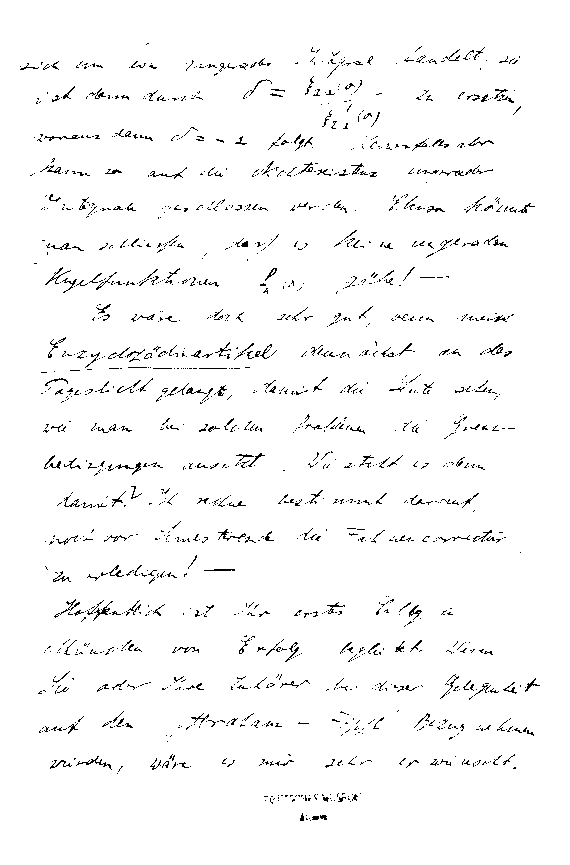 sich um ein ungerades Integral handelt, so
ist dann durch δ = ξ₂₂(0) / ξ'₂₂(0) zu ersetzen,
woraus dann δ = - 2 folgt. aber
kann so auf die Nichtexistenz ungerader
Integrale geschlossen werden. Ebenso könnte
man schließen, dass es keine ungeraden
Kugelfunktionen gäbe! —
Es wäre doch sehr gut, wenn mein
Enzyclopädieartikel demnächst an das
Tageslicht gelangt, damit die Leute sehen,
wie man bei solchen Problemen die Grenz-
bedingungen ansetzt. Wie steht es denn
damit? Ich rechne bestimmt darauf,
noch vor Semesterende die Fahnencorrectur
zu erledigen! —
Hoffentlich ist Ihr erstes Colleg in
München von Erfolg begleitet. Wenn
Sie oder Ihre Zuhörer bei dieser Gelegenheit
auf den „Abraham - Föppl" Bezug nehmen
würden, wäre es mir sehr erwünscht.